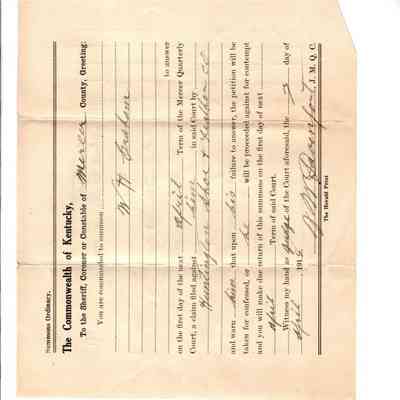 Summons Ordinary.
The Commonwealth of Kentucky,
To the Sheriff, Coroner or Constable of Mercer County, Greeting:
You are commanded to summon
W H
to answer
on the first day of the next April Term of the Mercer Quarterly
Court, a claim filed against him in said Court by
Huntington Shoe & Leather Co
and warn him that upon his failure to answer, the petition will be
taken for confessed, or he will be proceeded against for contempt
and you will make due return of this summons on the first day of next
April Term of said Court.
Witness my hand as Judge of the Court aforesaid, the day of
April 191
Davenport, J. M. Q. C.
The Herald Print